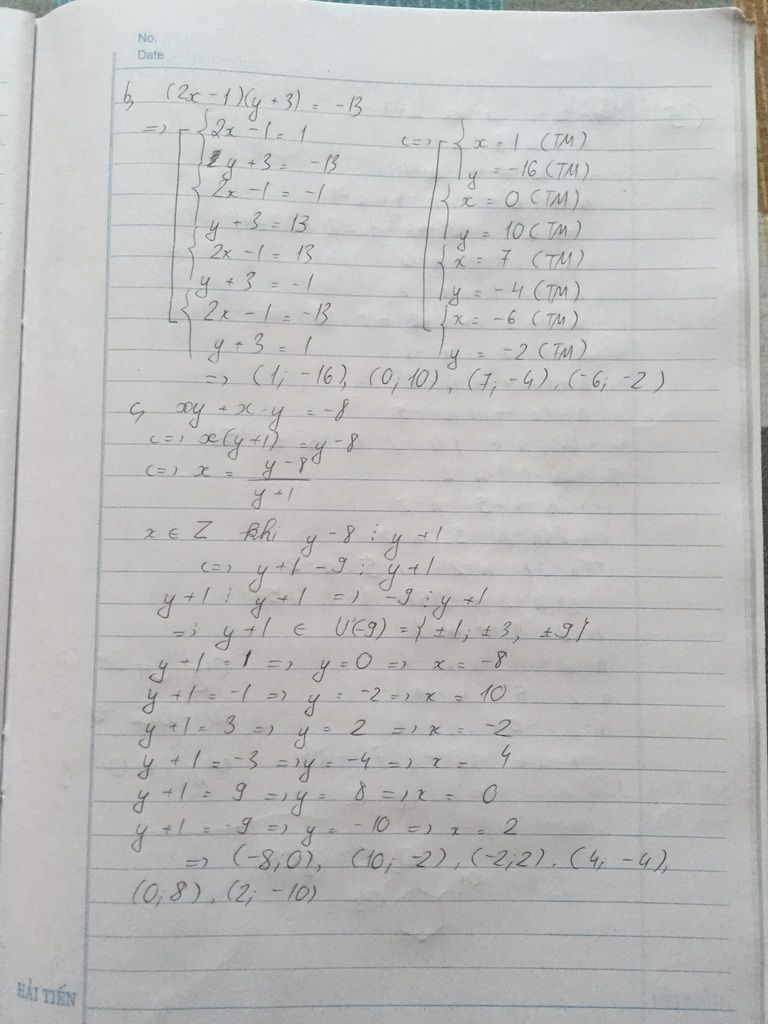 No.
Date
b, (2x - 1)(y + 3) = -13
=> [ { 2x - 1 = 1 <=> [ { x = 1 (TM)
y + 3 = -13 y = -16 (TM)
{ 2x - 1 = -1 { x = 0 (TM)
y + 3 = 13 y = 10 (TM)
{ 2x - 1 = 13 { x = 7 (TM)
y + 3 = -1 y = -4 (TM)
{ 2x - 1 = -13 { x = -6 (TM)
y + 3 = 1 y = -2 (TM)
=> (1; -16), (0; 10), (7; -4), (-6; -2)
c, xy + x - y = -8
<=> x(y+1) = y - 8
<=> x = (y - 8)/(y + 1)
x ∈ Z khi y - 8 ⋮ y + 1
<=> y + 1 - 9 ⋮ y + 1
y + 1 ⋮ y + 1 => -9 ⋮ y + 1
=> y + 1 ∈ Ư(-9) = { ±1; ±3; ±9 }
y + 1 = 1 => y = 0 => x = -8
y + 1 = -1 => y = -2 => x = 10
y + 1 = 3 => y = 2 => x = -2
y + 1 = -3 => y = -4 => x = 4
y + 1 = 9 => y = 8 => x = 0
y + 1 = -9 => y = -10 => x = 2
=> (-8; 0), (10; -2), (-2; 2), (4; -4),
(0; 8), (2; -10)
HẢI TIẾN